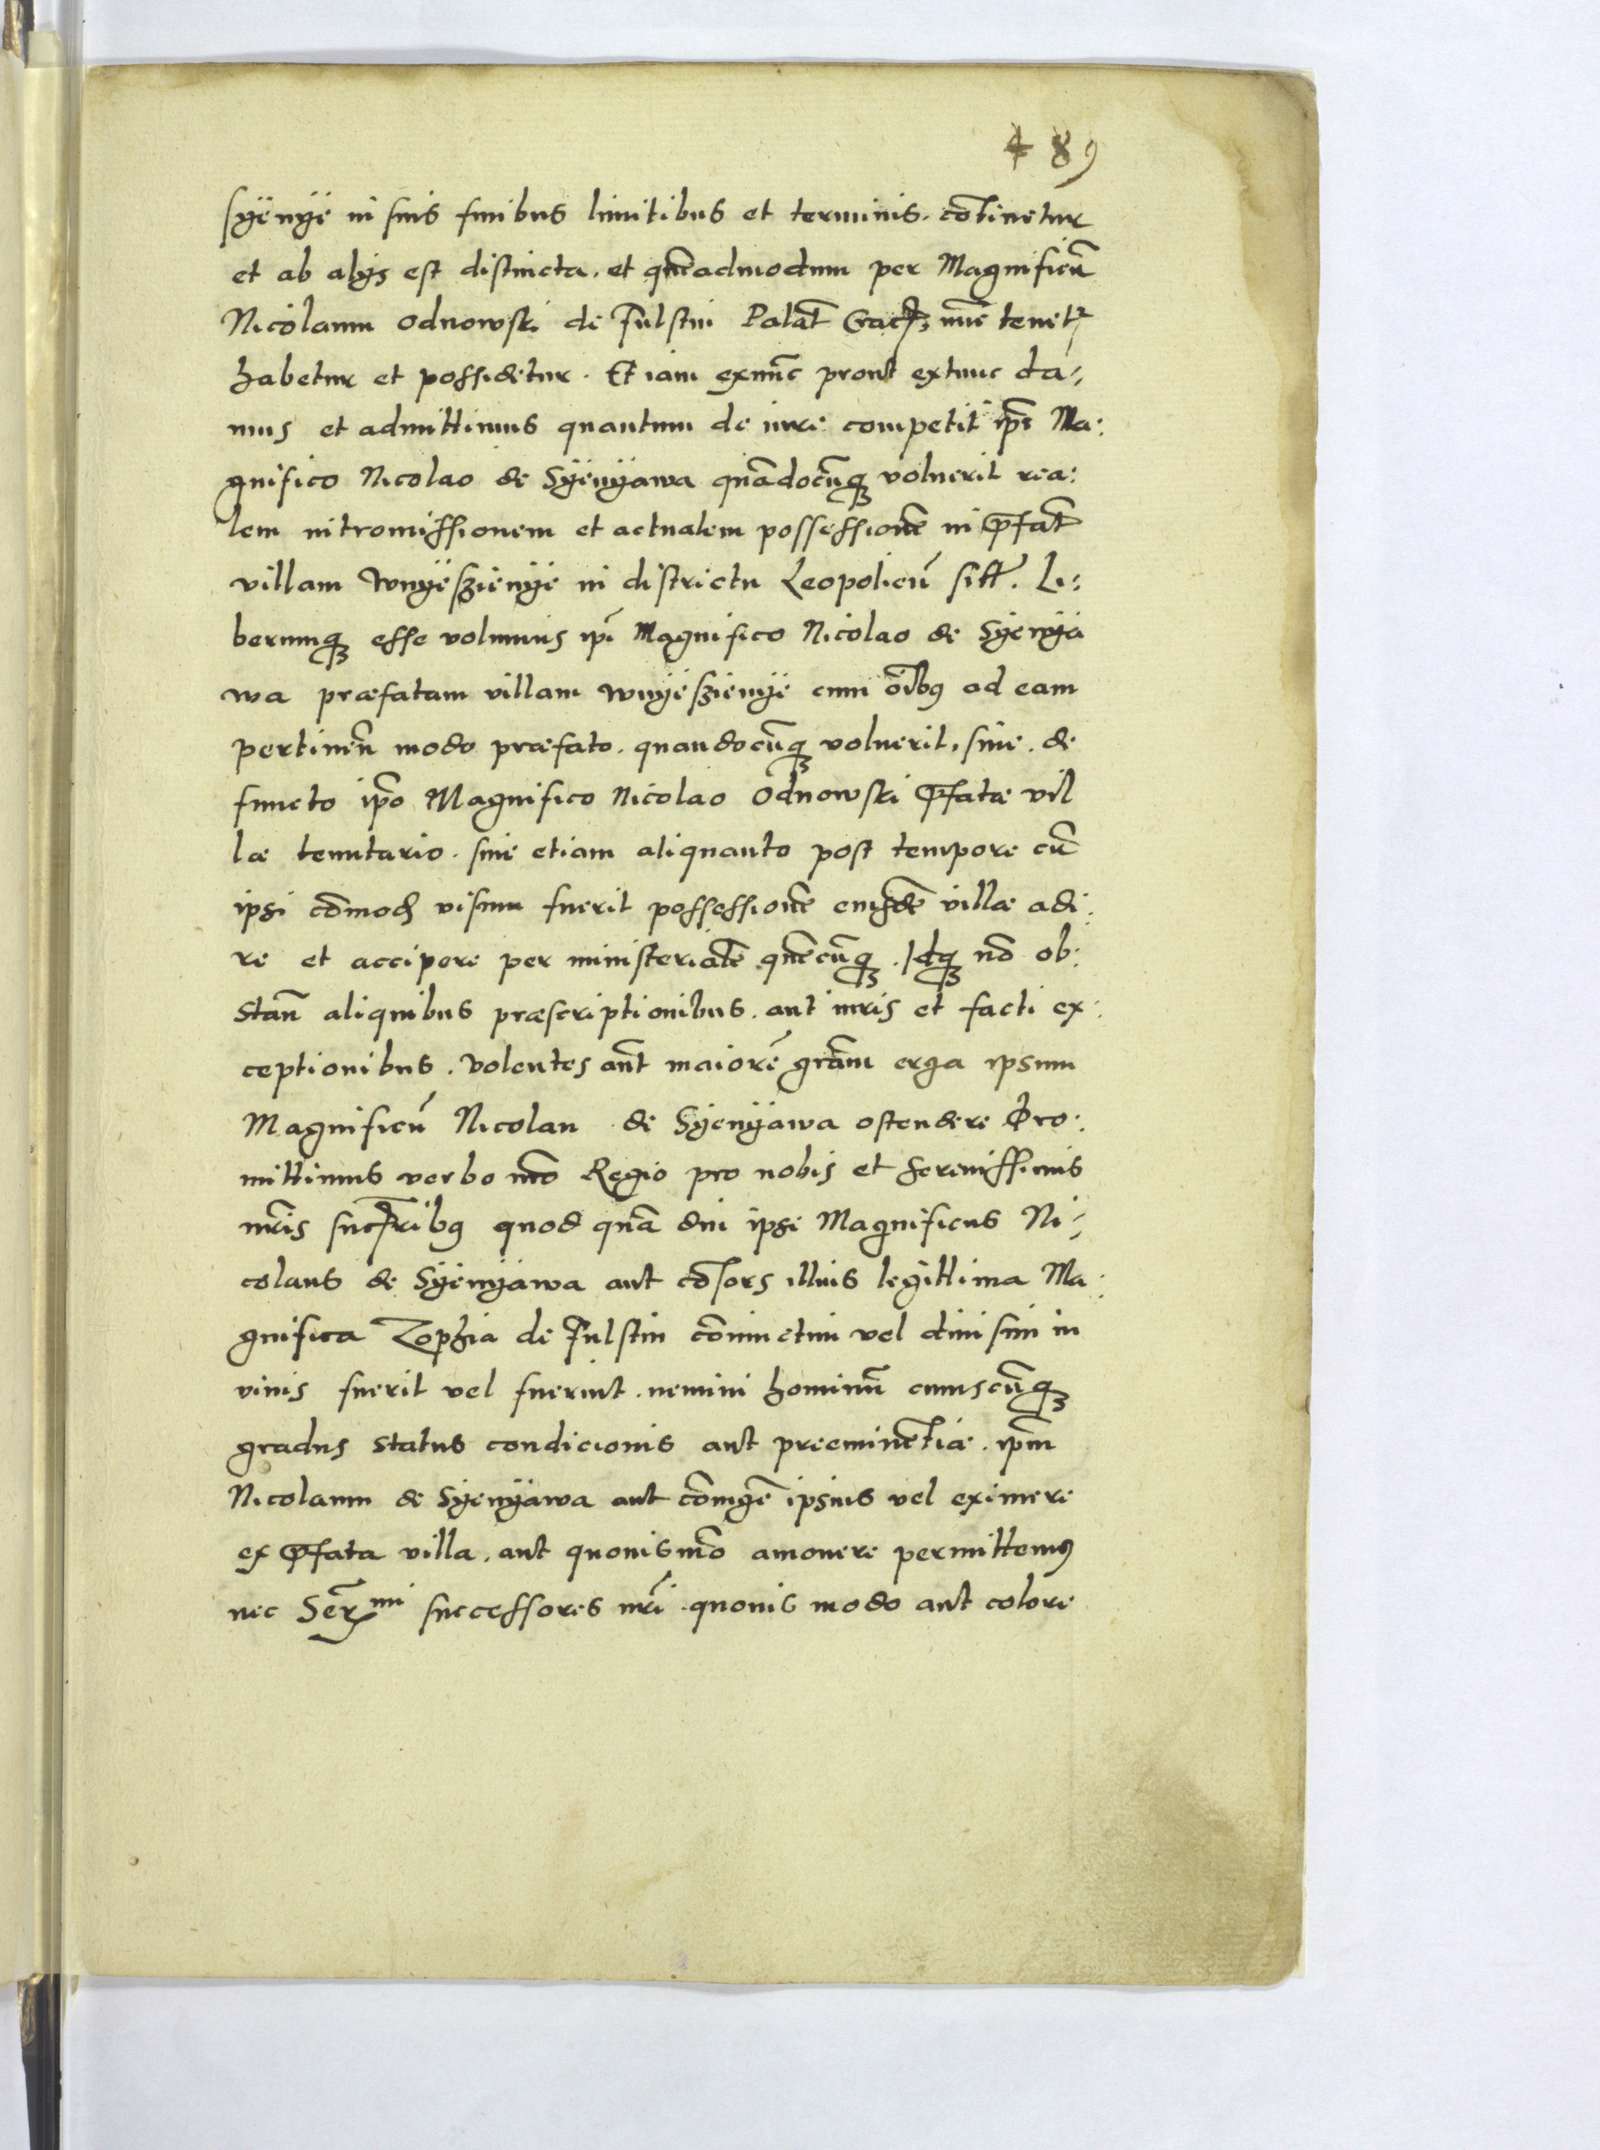 489
syënyë in suis finibus limitibus et terminis. cōtinetur
et ab alÿs est distincta. et quēadmodum per Magnificū
Nicolaum Odnowski de Fulstin Palat̄ nūc tenetr
habetur et possidetur. Et iam exnūc prout extunc da⸗
mus et admittimus quantum de iure competit ip̄i Ma:
gnifico Nicolao de Syënyawa quādocūqꝫ voluerit rea:
lem intromissionem et actualem possessionē in p̄fat̄
villam Wnyëszienyë in districtu Leopolien̄ sitt̄. Li:
berumqꝫ esse volumus ip̄i Magnifico Nicolao de Syënya
wa præfatam villam wnyëszienyë cum oībꝰ ad eam
pertinen̄ modo præfato. quandocūqꝫ voluerit, siue. de
functo ip̄o Magnifico Nicolao Odnowski p̄fatæ vil
læ tenutario. siue etiam aliquanto post tempore cū
ipsi cōmod visum fuerit possessionē eiusdē villæ adi:
re et accipere per ministerialē quēcūqꝫ. Idqꝫ nō ob:
stan̄ aliquibus præscriptionibus. aut iuris et facti ex:
ceptionibus. volentes aūt maiorē gr̄am erga ipsum
Magnificū Nicolau de Syenyawa ostendere Pro:
mittimus verbo nr̄o Regio pro nobis et serenissimis
nr̄is succ̄ribꝰ quod quā diu ipse Magnificus Ni⸗
colaus de Syënyawa aut cōsors illius legittima Ma:
gnifica Zophia de Fulstin cōniunctim vel diuisim in
viuis fuerit vel fuerint. nemini hominū cuiuscūqꝫ
gradus status condicionis aut preeminētiæ. ip̄m
Nicolaum de Syenyawa aut cōiugē ipsius vel eximere
ex p̄fata villa. aut quouismō amouere permittemꝰ
nec Ser̄mi successores nr̄i quouis modo aut colore